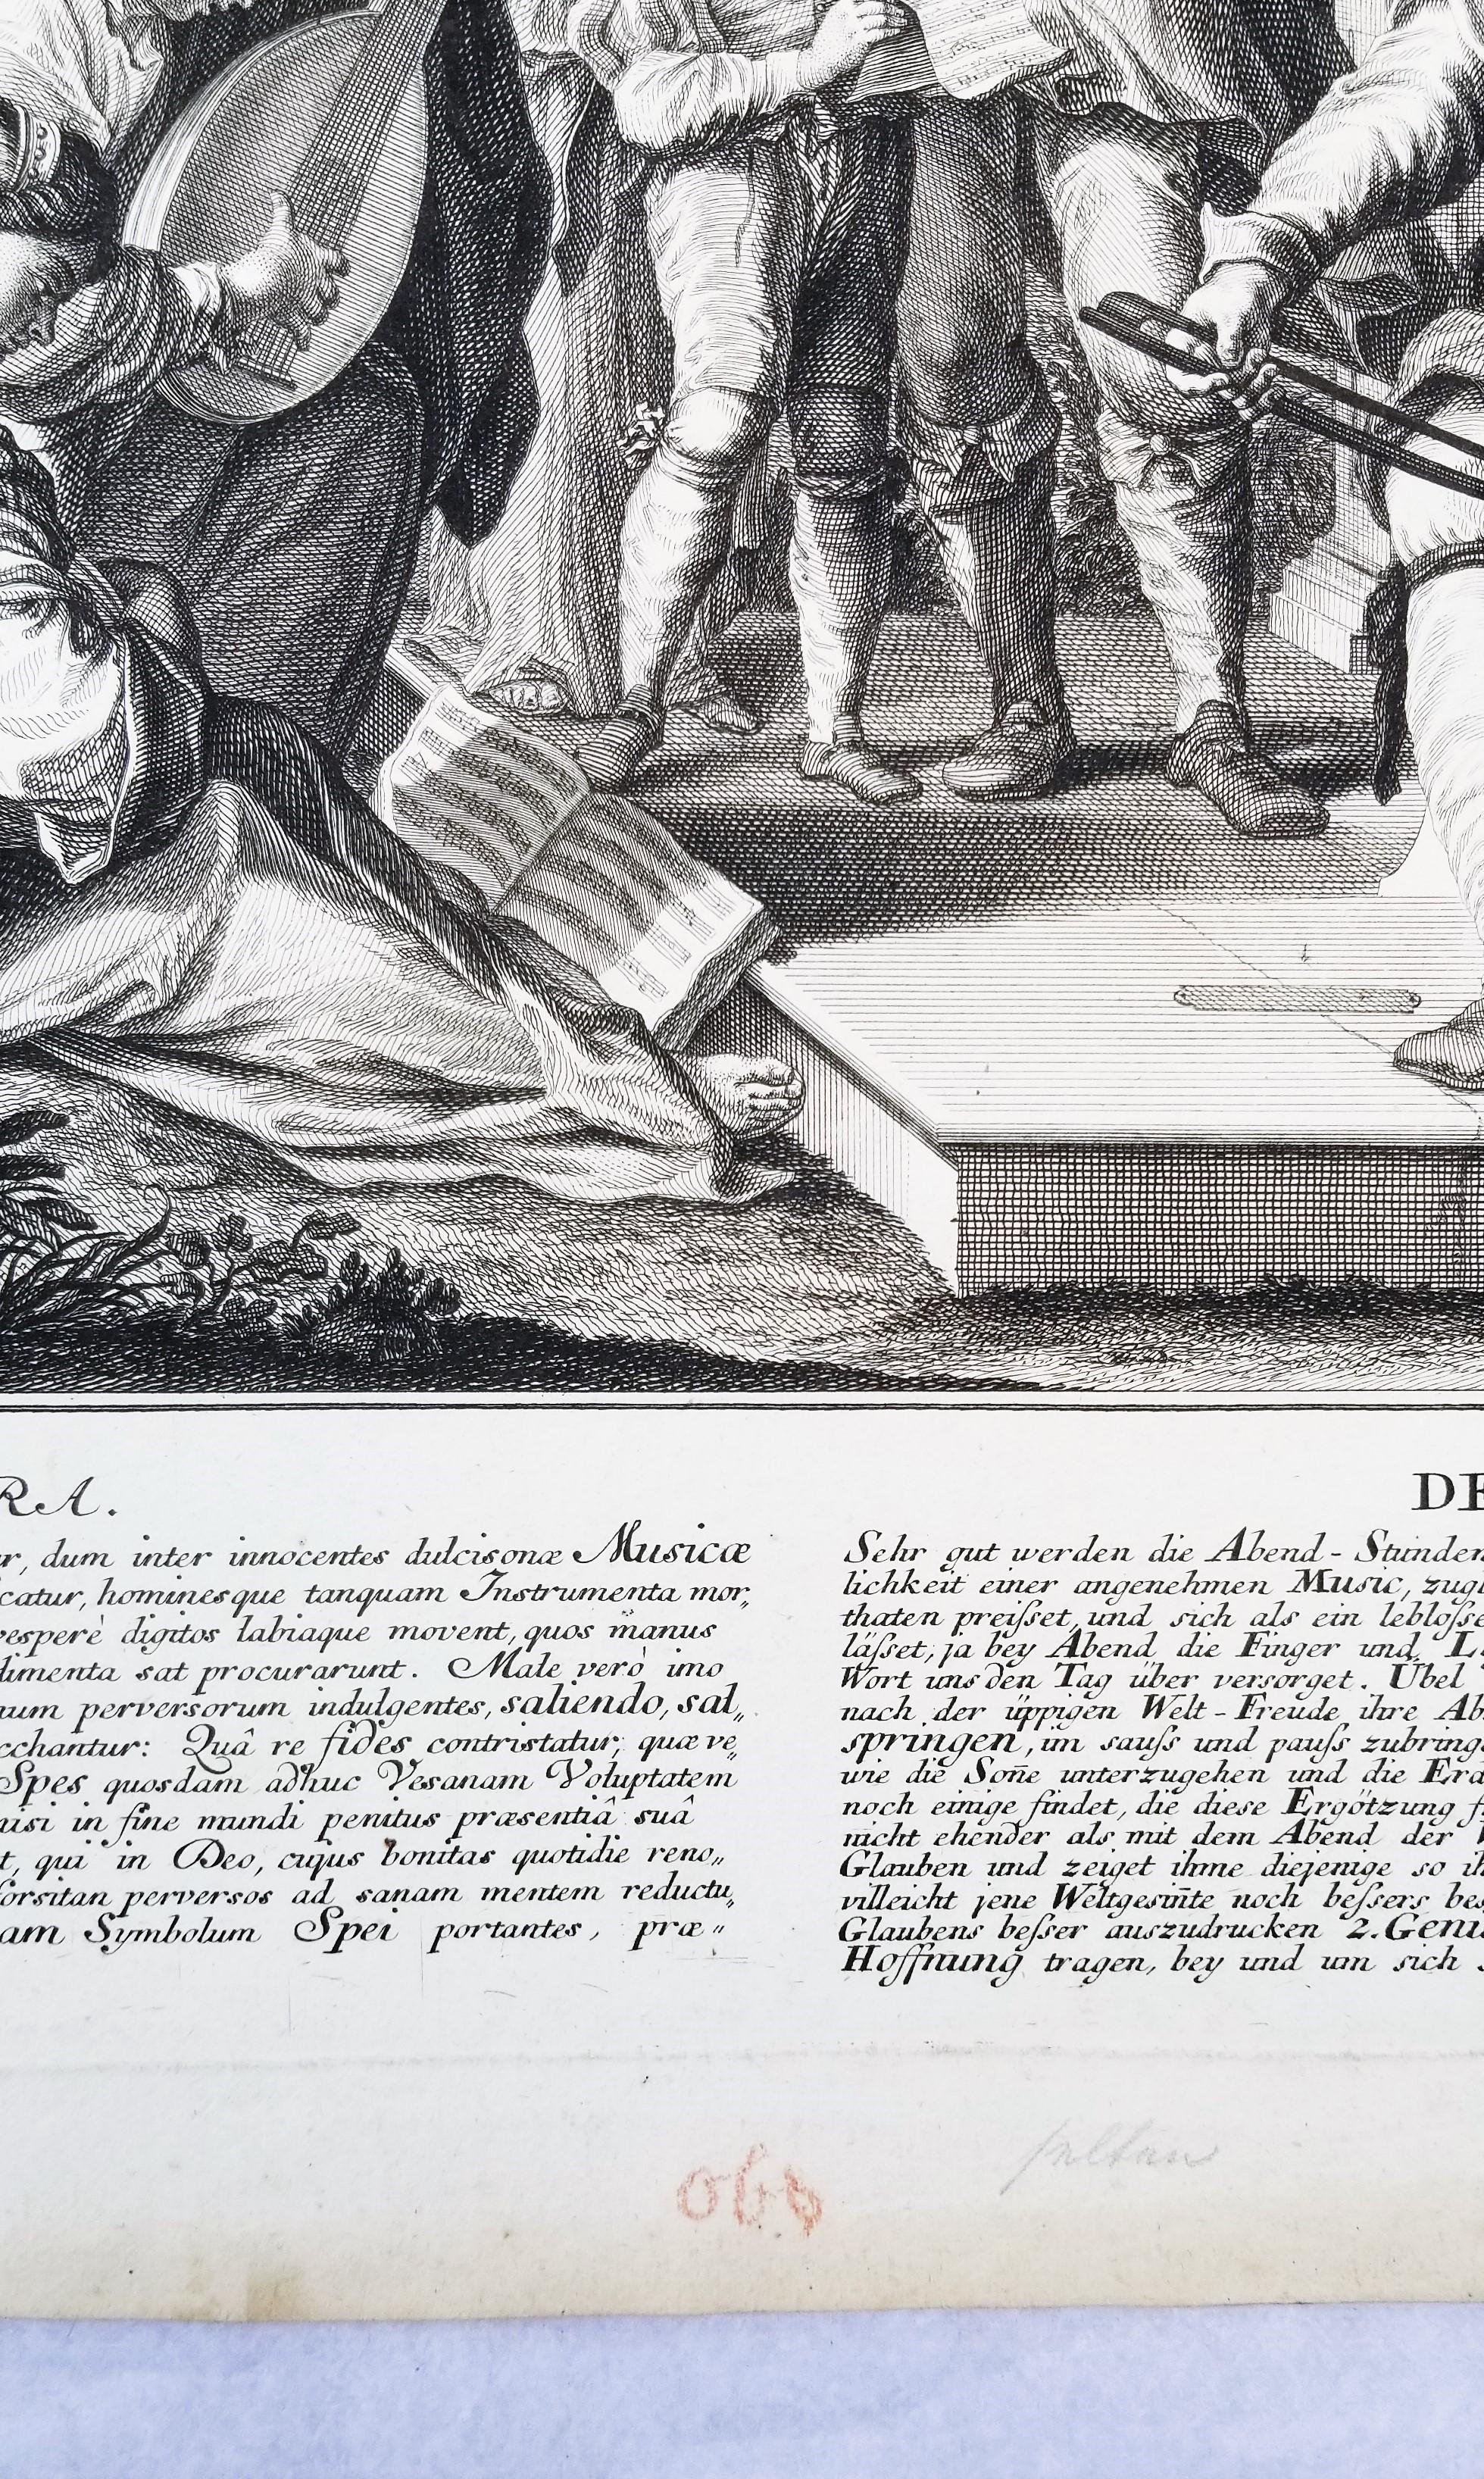 RA.
r, dum inter innocentes dulcisonæ Musicæ
catur, hominesque tanquam Instrumenta mor„
vesperè digitos labiaque movent, quos manus
dimenta sat procurarunt. Male verò imo
num perversorum indulgentes, saliendo, sal„
cchantur: Quâ re fides contristatur, quæ ve„
Spes quosdam adhuc Vesanam Voluptatem
nisi in fine mundi penitus præsentiâ suâ
t, qui in Deo, cujus bonitas quotidie reno„
forsitan perversos ad sanam mentem reductu„
am Symbolum Spei portantes, præ„
DE
Sehr gut werden die Abend-Stunden
lichkeit einer angenehmen Music, zugl
thaten preisset, und sich als ein leblosse
lässet, ja bey Abend die Finger und L
Wort uns den Tag über versorget. Übel
nach der üppigen Welt-Freude ihre Ab
springen, im sauss und pauss zubring
wie die Son̄e unterzugehen und die Erd
noch einige findet, die diese Ergötzung f
nicht ehender als mit dem Abend der W
Glauben und zeiget ihme diejenige so ih
villeicht jene Weltgesin̄te noch bessers bes
Glaubens besser auszudrucken 2. Geni
Hoffnung tragen, bey und um sich